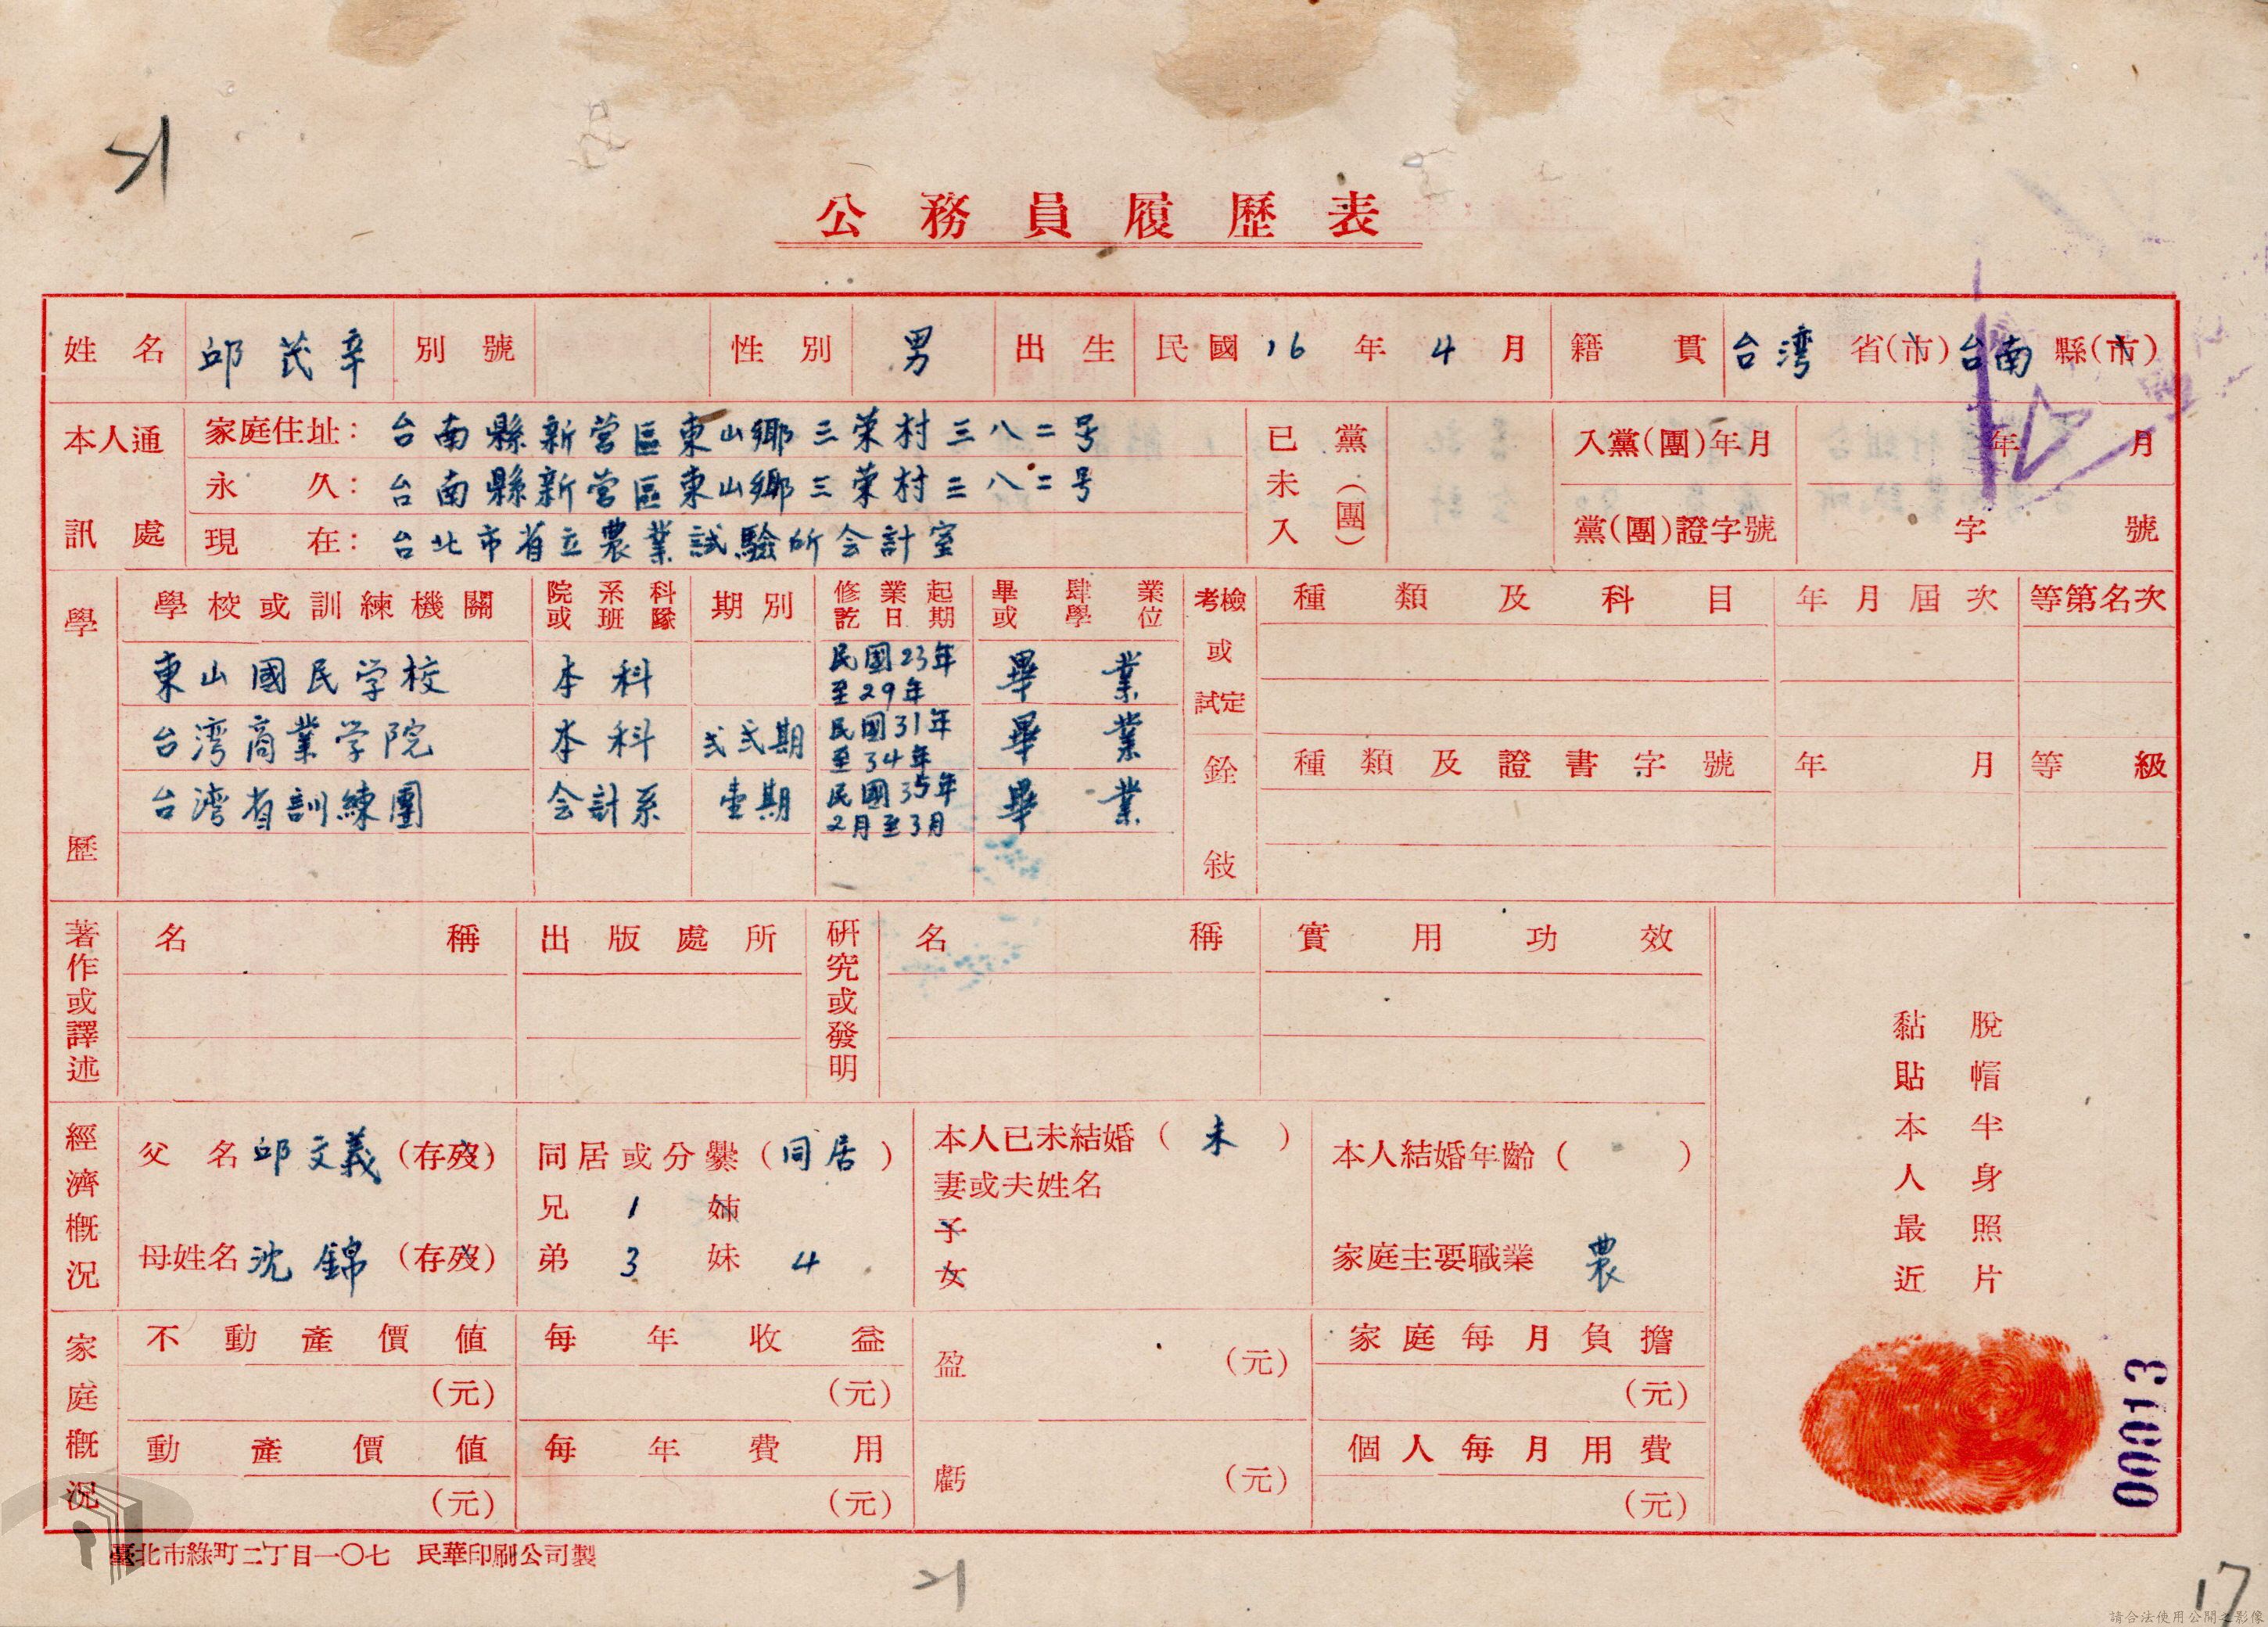 公務員履歷表
姓名 邱茂辛 別號 性別 男 出生 民國16年4月 籍貫 台湾省(市)台南縣(市)
本人通訊處
家庭住址: 台南縣新营區東山鄉三荣村三八二号
永久: 台南縣新营區東山鄉三荣村三八二号
現在: 台北市省立農業試驗所会計室
已未入黨(團)
入黨(團)年月 年 月
黨(團)證字號 字 號
學歷
學校或訓練機關 院系科或班隊 期別 修業起訖日期 畢肄業或學位
東山國民学校 本科 民國23年至29年 畢業
台湾商業学院 本科 弍弍期 民國31年至34年 畢業
台湾省訓練團 会計系 壹期 民國35年2月至3月 畢業
考檢或試定
種類及科目 年月屆次 等第名次
銓敍
種類及證書字號 年月 等級
著作或譯述
名稱 出版處所
研究或發明
名稱 實用功效
經濟概況
父名 邱文義 (存歿) 同居或分爨(同居) 本人已未結婚(未) 本人結婚年齡( )
兄 1 姊 妻或夫姓名
母姓名 沈錦 (存歿) 弟 3 妹 4 子 女 家庭主要職業 農
家庭概況
不動產價值 每年收益 盈 (元) 家庭每月負擔
(元) (元) (元)
動產價值 每年費用 虧 (元) 個人每月用費
(元) (元) (元)
脫帽半身照片
黏貼本人最近
00013
臺北市綠町二丁目一〇七 民華印刷公司製
17
請合法使用公開之影像